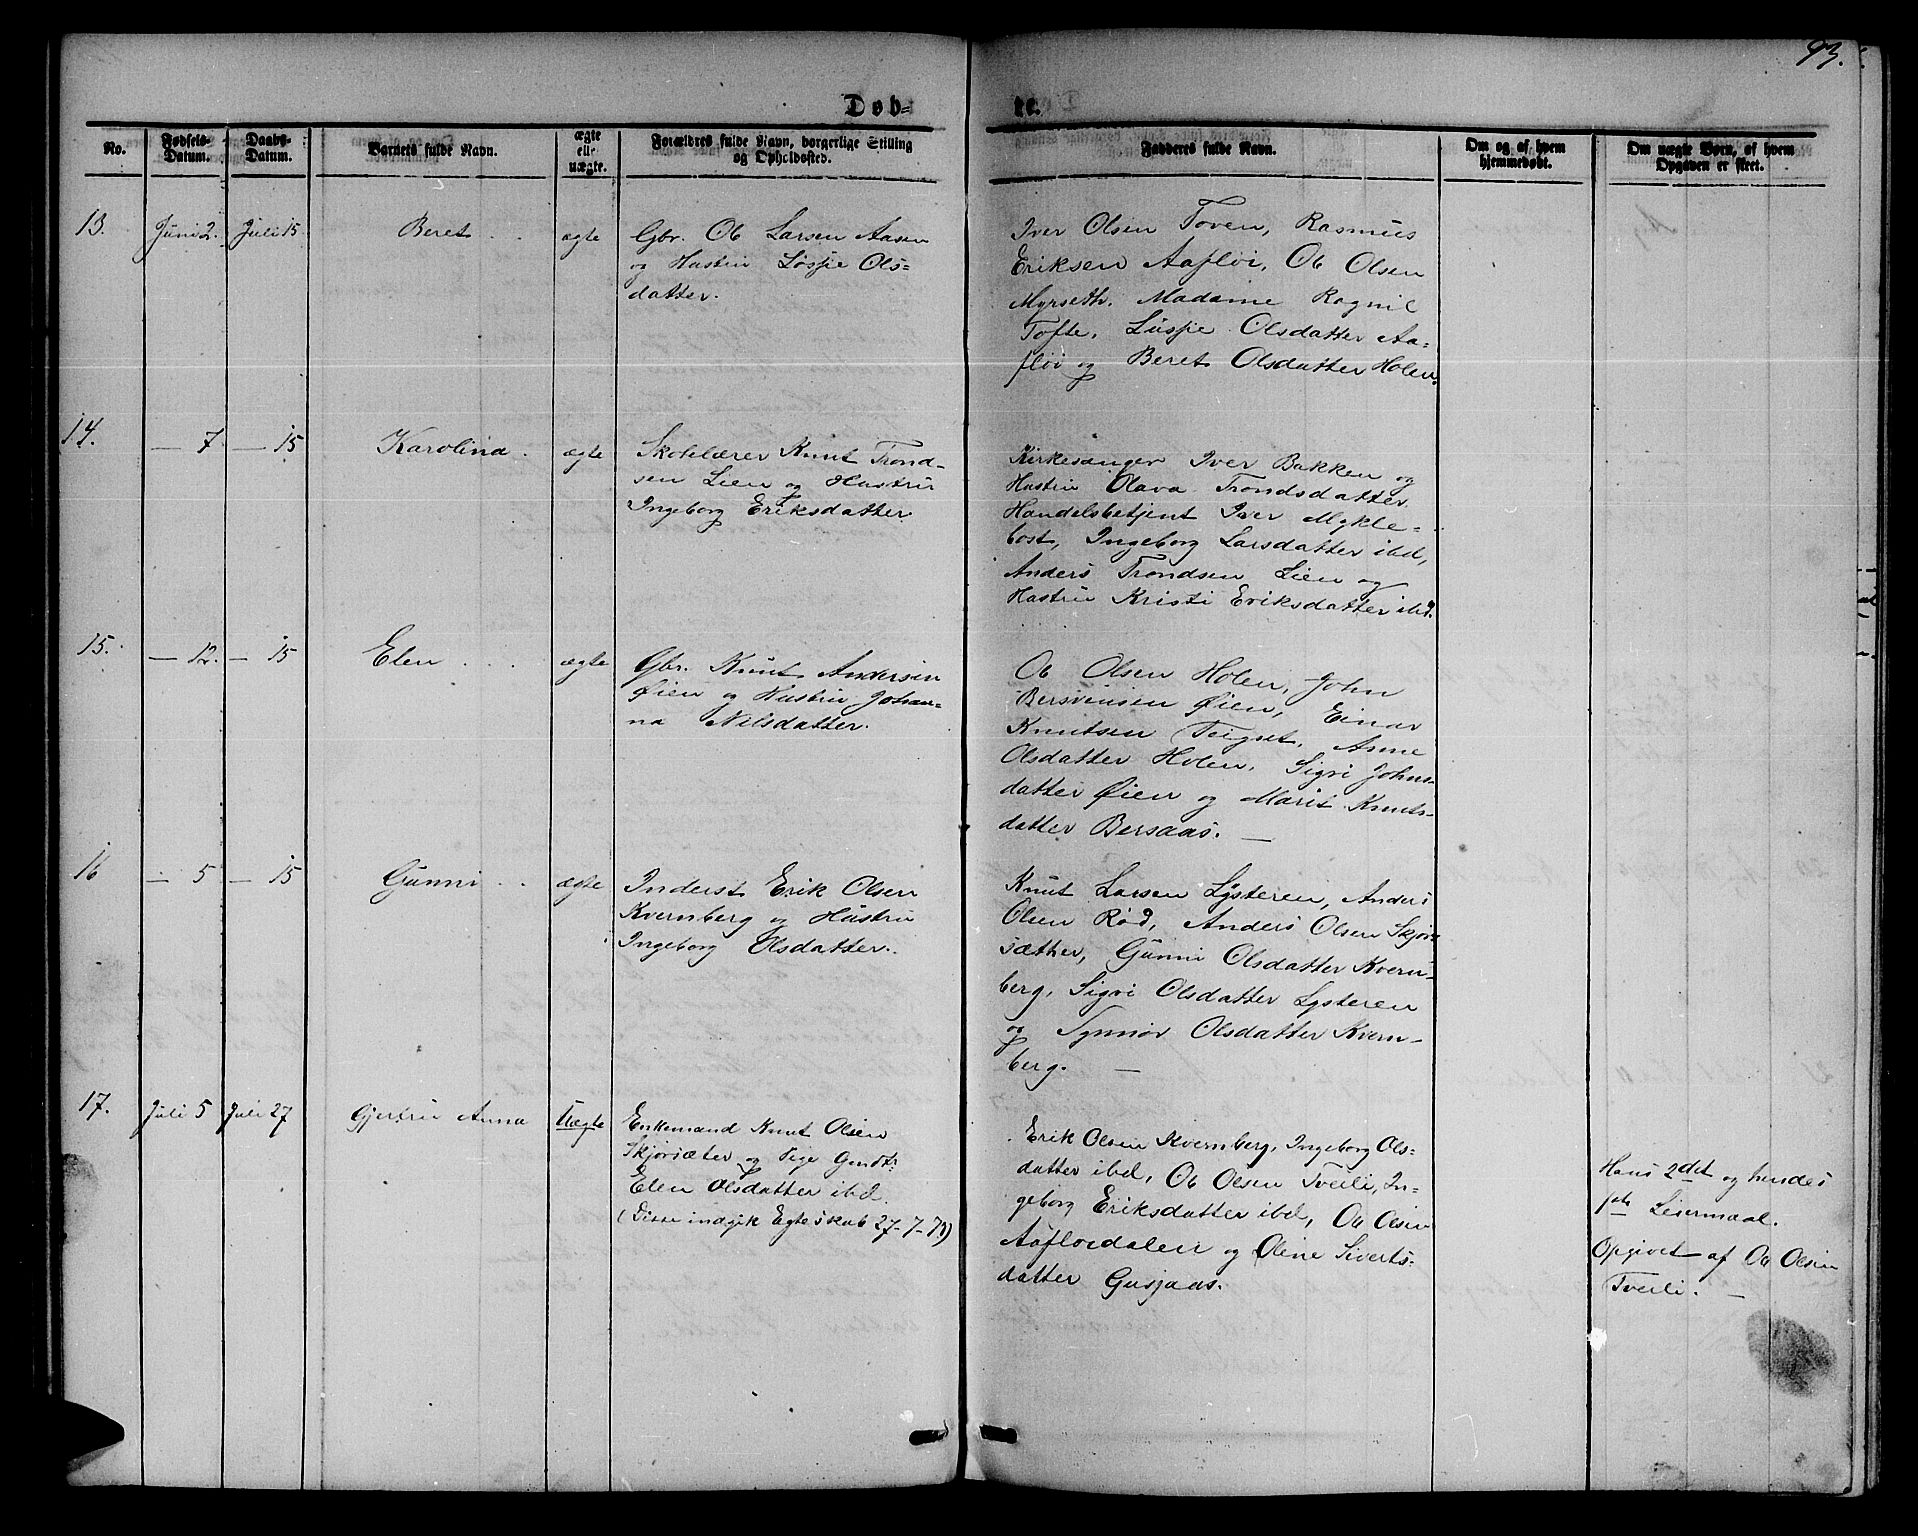 93.
Døb-
te.
No.
Fødsels-
Datum.
Daabs-
Datum.
Barnets fulde Navn.
ægte
ell.
uægte.
Forældres fulde Navn, borgerlige Stilling
og Opholdssted.
Fadderes fulde Navn.
Om og af hvem
hjemmedøbt.
Om uægte Børn, af hvem
Opgaven er skeet.
13.
Juni 2.
Juli 15
Beret
ægte
Gbr. Ob Larsen Aasen
og Hustru Løssje Ols-
datter.
Iver Olsen Toven, Rasmus
Eriksen Aafløi, Ob Olsen
Myrseth. Madame Ragnil
Tofte, Lussje Olsdatter Aa-
fløi og Beret Olsdatter Holen.
14.
— 7
— 15
Karolina.
ægte
Skolelærer Knut Trond-
sen Lien og Hustru
Ingeborg Eriksdatter.
Kirkesanger Iver Bakken og
Hustru Olava Trondsdatter
Handelsbetjent Iver Mykle-
bost, Ingeborg Larsdatter ibd,
Anders Trondsen Lien og
Hustru Kristi Eriksdatter ibd.
15.
— 12.
— 15
Elen
ægte
Gbr. Knut Andersen
Øien og Hustru Johan-
na Nilsdatter.
Ob Olsen Holen, John
Bersvensen Øien, Einar
Knutsen Teignet, Anne
Olsdatter Holen, Sigri Johns-
datter Øien og Marit Knuts-
datter Bersaas. —
16
— 5
— 15
Gunni
ægte
Inderst Erik Olsen
Kvernberg og Hustru
Ingeborg Olsdatter.
Knut Larsen Lysteren, Anders
Olsen Rød, Anders Olsen Skjør-
sæther, Gunni Olsdatter Kvern-
berg, Sigri Olsdatter Lysteren
og Synnøv Olsdatter Kvern-
berg. —
17.
Juli 5
Juli 27
Gjertru Anna
Uægte
Enkemand Knut Olsen
Skjørsæter og Pige Gundt:
Elen Olsdatter ibd.
(Disse indgik Egteskab 27-7-73)
Erik Olsen Kvernberg, Ingeborg Ols-
datter ibd, Ob Olsen Tveili, In-
geborg Eriksdatter ibd, Ob Olsen
Aafloidalen og Oline Siverts-
datter Gusjaas.
Hans 2det og hendes
1ste Leiermaal.
Opgivet af Ob Olsen
Tveili. —